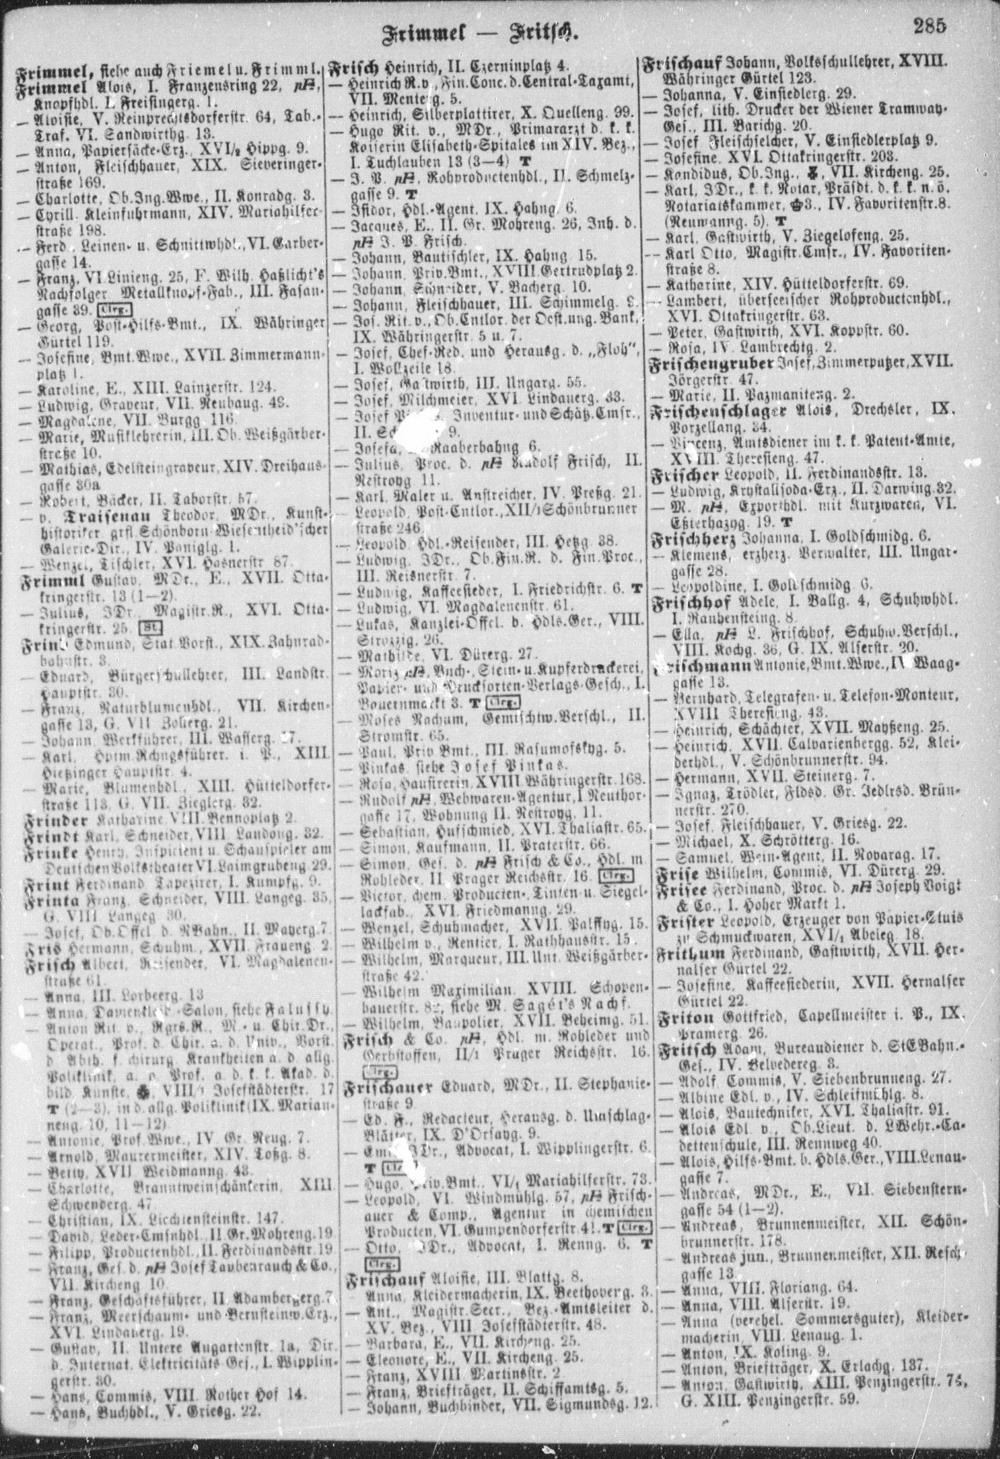 Frimmel — Fritsch.
285
Frimmel, siehe auch Friemel u. Frimml.
Frimmel Alois, I. Franzensring 22,
Knopfhdl. I. Freisingerg. 1.
— Aloisie, V. Reinprechtsdorferstr. 64, Tab.-
Traf. VI. Sandwirthg. 13.
— Anna, Papiersäcke-Erz., XVI/2 Hippg. 9.
— Anton, Fleischhauer, XIX. Sieveringer-
straße 169.
— Charlotte, Ob.Ing.Wwe., II. Konradg. 3.
— Cyrill, Kleinfuhrmann, XIV. Mariahilfer-
straße 198.
— Ferd., Leinen- u. Schnittwhdl., VI. Garber-
gasse 14.
— Franz, VI Linieng. 25, F. Wilh. Haßlicht's
Nachfolger Metallknopf-Fab., III. Fasan-
gasse 39. Clrg.
— Georg, Post-Hilfs-Bmt., IX. Währinger
Gürtel 119.
— Josefine, Bmt.Wwe., XVII. Zimmermann-
platz 1.
— Karoline, E., XIII. Lainzerstr. 124.
— Ludwig, Graveur, VII. Neubaug. 48.
— Magdalene, VII. Burgg. 116.
— Marie, Musiklehrerin, III. Ob. Weißgärber-
straße 10.
— Mathias, Edelsteingraveur, XIV. Dreihaus-
gasse 30a
— Robert, Bäcker, II. Taborstr. 57.
— v. Traisenau Theodor, MDr., Kunst-
historiker, grfl. Schönborn-Wiesentheid'scher
Galerie-Dir., IV. Paniglg. 1.
— Wenzel, Tischler, XVI. Hasnerstr 87.
Frimml Gustav, MDr., E., XVII. Otta-
kringerstr. 13 (1—2).
— Julius, JDr., Magistr.R., XVI. Otta-
kringerstr. 25. St.
Frink Edmund, Stat.Vorst., XIX. Zahnrad-
bahnstr. 3.
— Eduard, Bürgerschullehrer, III. Landstr.
Hauptstr. 30.
— Franz, Naturblumenhdl., VII. Kirchen-
gasse 13, G. VII Zollerg. 21.
— Johann, Werkführer, III. Wasserg. 17.
— Karl, Hptm.Rchngsführer. i. P., XIII.
Hietzinger Hauptstr. 4.
— Marie, Blumenhdl., XIII. Hütteldorfer-
straße 113, G. VII. Zieglerg. 32.
Frinder Katharine, VIII. Bennoplatz 2.
Frindt Karl, Schneider, VIII. Landong. 32.
Frinke Henry, Inspicient u. Schauspieler am
Deutschen Volkstheater VI. Laimgrubeng 29.
Frint Ferdinand, Tapezirer, I. Kumpfg. 9.
Frinta Franz, Schneider, VIII. Langeg. 35,
G. VIII. Langeg 30.
— Josef, Ob.Offel. d. NBahn., II. Mayerg. 7.
Fris Hermann, Schuhm., XVII. Fraueng. 2.
Frisch Albert, Reisender, VI. Magdalenen-
straße 61.
— Anna, III. Lorbeerg. 13
— Anna, Damenkleider-Salon, siehe Falussy.
— Anton Rit. v., Rgrs.R., M.- u. Chir.Dr.,
Operat., Prof. d. Chir. a. d. Univ., Vorst.
d. Abth. f. chirurg. Krankheiten a. d. allg.
Poliklinik, a. o. Prof. a. d. k. k. Akad. d.
bild. Künste, VIII/1 Josefstädterstr. 17
T (2—3), in d. allg. Poliklinik (IX. Marian-
neng. 10, 11—12).
— Antonie, Prof.Wwe., IV Gr. Neug. 7.
— Arnold, Maurermeister, XIV. Toßg. 8.
— Betty, XVII Weidmanng. 43.
— Charlotte, Branntweinschänkerin, XIII
Schwenderg. 47.
— Christian, IX. Liechtensteinstr. 147.
— David, Leder-Cmsnhdl., II. Gr. Mohreng. 19
— Filipp, Productenhdl., II. Ferdinandsstr. 19
— Franz, Ges. d. Josef Taubenrauch & Co.,
VII. Kircheng 10.
— Franz, Geschäftsführer, II. Adambergerg. 7
— Franz, Meerschaum- und Bernsteinw.Erz.,
XVI. Lindauerg. 19.
— Gustav, II. Untere Augartenstr. 1a, Dir.
d. Internat. Elektricitäts Ges., I. Wipplin-
gerstr. 30.
— Hans, Commis, VIII. Rother Hof 14.
— Hans, Buchhdl., V. Griesg. 22.
Frisch Heinrich, II. Czerninplatz 4.
— Heinrich R. v., Fin.Conc. d. Central-Taxamt,
VII. Menterg. 5.
— Heinrich, Silberplattirer, X. Quelleng. 99.
— Hugo Rit. v., MDr., Primararzt d. k. k.
Kaiserin Elisabeth-Spitales im XIV. Bez.,
I. Tuchlauben 13 (3—4) T
— J. P., Rohproductenhdl., II. Schmelz-
gasse 9. T
— Isidor, Hdl.-Agent. IX. Hahng. 6.
— Jacques, E., II. Gr. Mohreng. 26, Inh. d.
J. P. Frisch.
— Johann, Bautischler, IX. Hahng. 15.
— Johann, Priv.Bmt., XVIII. Gertrudplatz 2.
— Johann, Schneider, V. Bacherg. 10.
— Johann, Fleischhauer, III. Schimmelg.
— Jos. Rit. v., Ob.Cntlor. der Oest.ung. Bank,
IX. Währingerstr. 5 u. 7.
— Josef, Chef-Red. und Herausg. d. „Floh“,
I. Wollzeile 18.
— Josef, Gastwirth, III. Ungarg. 55.
— Josef, Milchmeier, XVI. Lindauerg. 33.
— Josef Inventur- und Schätz.Cmsr.,
II. 9.
— Josefa, Raaberbahng. 6.
— Julius, Proc. d. Rudolf Frisch, II.
Nestroyg 11.
— Karl, Maler u. Anstreicher, IV. Preßg. 21.
— Leopold, Post-Cntlor., XII/1 Schönbrunner
straße 246.
— Leopold, Hdl.-Reisender, III. Hetzg. 38.
— Ludwig, JDr., Ob.Fin.R. d. Fin.Proc.,
III. Reisnerstr. 7.
— Ludwig, Kaffeesieder, I. Friedrichstr. 6. T
— Ludwig, VI. Magdalenenstr. 61.
— Lukas, Kanzlei-Offel. b. Hdls.Ger., VIII.
Strozzig. 26.
— Mathilde, VI. Dürerg. 27.
— Moriz, Buch-, Stein- u. Kupferdruckerei,
Papier- und Drucksorten-Verlags-Gesch., I.
Bauernmarkt 3. T Clrg.
— Moses Nachum, Gemischtw.Verschl., II.
Stromstr. 65.
— Paul, Priv.Bmt., III. Rasumofskyg. 5.
— Pinkas, siehe Josef Pinkas.
— Rosa, Hausirerin, XVIII Währingerstr. 168.
— Rudolf, Webwaren-Agentur, I. Neuthor-
gasse 17, Wohnung II. Nestroyg. 11.
— Sebastian, Hufschmied, XVI. Thaliastr. 65.
— Simon, Kaufmann, II. Praterstr. 66.
— Simon, Ges. d. Frisch & Co., Hdl. m.
Rohleder, II Prager Reichsstr. 16. Clrg.
— Victor, chem. Producten-, Tinten- u. Siegel-
lackfab., XVI. Friedmanng. 29.
— Wenzel, Schuhmacher, XVII. Palffyg. 15.
— Wilhelm v., Rentier, I. Rathhausstr. 15.
— Wilhelm, Marqueur, III. Unt. Weißgärber-
straße 42.
— Wilhelm Maximilian, XVIII. Schopen-
bauerstr. 82, siehe M. Sagét's Nachf.
— Wilhelm, Baupolier, XVII. Beheimg. 51.
Frisch & Co., Hdl. m. Rohleder und
Gerbstoffen, II/1 Prager Reichsstr. 16.
Clrg.
Frischauer Eduard, MDr., II. Stephanie-
straße 9
— Ed. F., Redacteur, Herausg. d. Umschlag-
Blätter, IX. D'Orsayg. 9.
— JDr., Advocat, I. Wipplingerstr. 6.
T
— Hugo, Priv.Bmt., VI/1 Mariahilferstr. 73.
— Leopold, VI. Windmühlg. 57, Frisch-
auer & Comp., Agentur in chemischen
Producten, VI. Gumpendorferstr. 41. T Clrg.
— Otto, JDr., Advocat, I. Renng. 6. T
Clrg.
Frischauf Aloisie, III. Blattg. 8.
— Anna, Kleidermacherin, IX. Beethoverg. 3.
— Ant., Magistr.Secr., Bez.-Amtsleiter d.
XV. Bez., VIII Josefstädterstr. 48.
— Barbara, E., VII. Kircheng. 25.
— Eleonore, E., VII. Kircheng. 25.
— Franz, XVIII Martinsstr. 2
— Franz, Briefträger, II. Schiffamtsg. 5.
— Johann, Buchbinder, VII. Sigmundsg. 12.
Frischauf Johann, Volksschullehrer, XVIII.
Währinger Gürtel 123.
— Johanna, V. Einsiedlerg. 29.
— Josef, lith. Drucker der Wiener Tramway-
Ges., III. Barichg. 20.
— Josef, Fleischselcher, V. Einsiedlerplatz 9.
— Josefine, XVI. Ottakringerstr. 203.
— Kandidus, Ob.Ing., VII. Kircheng. 25.
— Karl, JDr., k. k. Notar, Präsdt. d. k. k. n. ö.
Notariatskammer, 3., IV. Favoritenstr. 8.
(Neuwanng. 5). T
— Karl, Gastwirth, V. Ziegelofeng. 25.
— Karl Otto, Magistr.Cmsr., IV. Favoriten-
straße 8.
— Katharine, XIV. Hütteldorferstr. 69.
— Lambert, überseeischer Rohproductenhdl.,
XVI. Ottakringerstr. 63.
— Peter, Gastwirth, XVI. Koppstr. 60.
— Rosa, IV. Lambrechtg. 2.
Frischengruber Josef, Zimmerputzer, XVII.
Jörgerstr. 47.
— Marie, II. Pazmaniteng. 2.
Frischenschlager Alois, Drechsler, IX.
Porzellang. 34.
— Vincenz, Amtsdiener im k. k. Patent-Amte,
XVIII. Theresieng. 47.
Frischer Leopold, II. Ferdinandsstr. 13.
— Ludwig, Krystallsoda-Erz., II. Darwing. 32.
— M., Exporthdl. mit Kurzwaren, VI.
Eßterhazyg. 19. T
Frischherz Johanna, I. Goldschmidg. 6.
— Klemens, erzherz. Verwalter, III. Ungar-
gasse 28.
— Leopoldine, I. Goldschmidg. 6.
Frischhof Adele, I. Ballg. 4, Schuhwhdl.
I. Rauhensteing. 8.
— Ella, L. Frischhof, Schuhw.Verschl.,
VIII. Kochg. 36, G. IX. Alserstr. 20.
Frischmann Antonie, Bmt.Wwe., IV Waag-
gasse 13.
— Bernhard, Telegrafen- u. Telefon-Monteur,
XVIII Theresieng. 43.
— Heinrich, Schächter, XVII. Mayßeng. 25.
— Heinrich, XVII. Calvarienbergg. 52, Klei-
derhdl., V. Schönbrunnerstr. 94.
— Hermann, XVII. Steinerg. 7.
— Ignaz, Trödler, Fldsd. Gr. Jedlrsd. Brün-
nerstr. 270.
— Josef, Fleischhauer, V. Griesg. 22.
— Michael, X. Schrötterg. 16.
— Samuel, Wein-Agent, II. Novarag. 17.
Frise Wilhelm, Commis, VI. Dürerg. 29.
Frisee Ferdinand, Proc. d. Joseph Voigt
& Co., I. Hoher Markt 1.
Frister Leopold, Erzeuger von Papier-Etuis
zu Schmuckwaren, XVI/1 Abeleg. 18.
Frithum Ferdinand, Gastwirth, XVII. Her-
nalser Gürtel 22.
— Josefine, Kaffeesiederin, XVII. Hernalser
Gürtel 22.
Friton Gottfried, Capellmeister i. P., IX.
Pramerg. 26.
Fritsch Adam, Bureaudiener d. StEBahn.-
Ges., IV. Belvedereg. 3.
— Adolf, Commis, V. Siebenbrunneng. 27.
— Albine Edl. v., IV. Schleifmühlg. 8.
— Alois, Bautechniker, XVI. Thaliastr. 91.
— Alois Edl v., Ob.Lieut. d. LWehr.-Ca-
dettenschule, III. Rennweg 40.
— Alois, Hilfs-Bmt. b. Hdls.Ger., VIII. Lenau-
gasse 7.
— Andreas, MDr., E., VII. Siebenstern-
gasse 54 (1—2).
— Andreas, Brunnenmeister, XII. Schön-
brunnerstr. 178.
— Andreas jun., Brunnenmeister, XII. Resch
gasse 13.
— Anna, VIII. Floriang. 64.
— Anna, VIII. Alserstr. 19.
— Anna (verehel. Sommersguter), Kleider-
macherin, VIII. Lenaug. 1.
— Anton, IX. Koling. 9.
— Anton, Briefträger, X. Erlachg. 137.
— Anton, Gastwirth, XIII. Penzingerstr. 74,
G. XIII. Penzingerstr. 59.